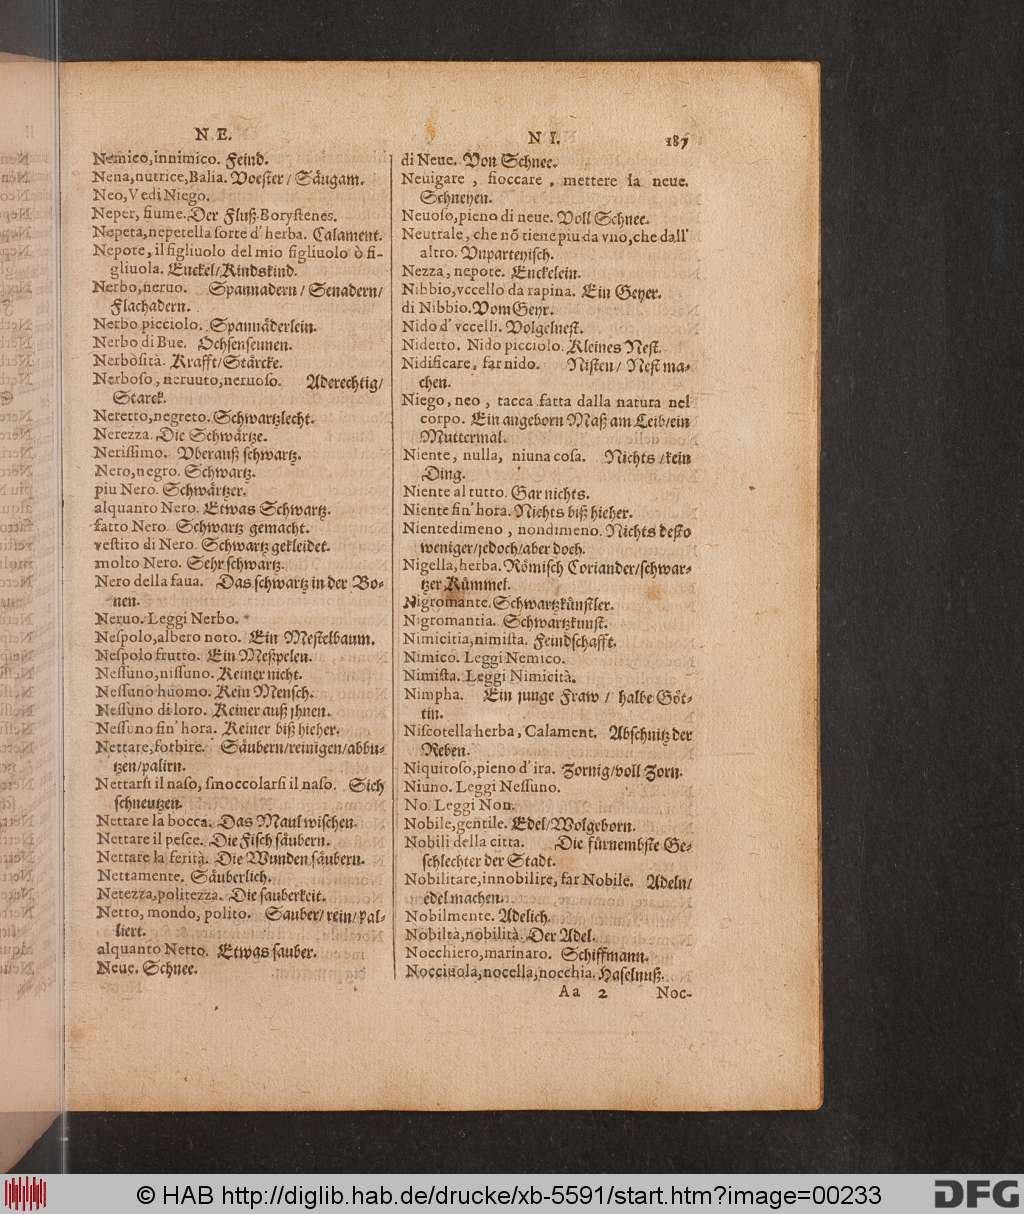 N E.
Nemico, innimico. Feind.
Nena, nutrice, Balia. Voester / Säugam.
Neo, Vedi Niego.
Neper, fiume. Der Fluß Borystenes.
Nepeta, nepetella sorte d' herba. Calament.
Nepote, il figliuolo del mio figliuolo ò fi-
gliuola. Enckel/Kindskind.
Nerbo, neruo. Spannadern / Senadern/
Flachadern.
Nerbo picciolo. Spannäderlein.
Nerbo di Bue. Ochsensennen.
Nerbosità. Krafft/Stärcke.
Nerboso, neruuto, neruoso. Aderechtig/
Starck.
Neretto, negreto. Schwartzlecht.
Nerezza. Die Schwärtze.
Nerissimo. Vberauß schwartz.
Nero, negro. Schwartz.
piu Nero. Schwärtzer.
alquanto Nero. Etwas Schwartz.
fatto Nero. Schwartz gemacht.
vestito di Nero. Schwartz gekleidet.
molto Nero. Sehr schwartz.
Nero della faua. Das schwartz in der Bo-
nen.
Neruo. Leggi Nerbo.
Nespolo, albero noto. Ein Mestelbaum.
Nespolo frutto. Ein Mespelen.
Nessuno, nissuno. Keiner nicht.
Nessuno huomo. Kein Mensch.
Nessuno di loro. Keiner auß jhnen.
Nessuno fin' hora. Keiner biß hieher.
Nettare, forbire. Säubern/reinigen/abbu-
tzen/palirn.
Nettarsi il naso, smoccolarsi il naso. Sich
schneutzen.
Nettare la bocca. Das Maul wischen.
Nettare il pesce. Die Fisch säubern.
Nettare la ferità. Die Wunden säubern.
Nettamente. Säuberlich.
Netezza, politezza. Die sauberkeit.
Netto, mondo, polito. Sauber/ rein/ pal-
liert.
alquanto Netto. Etwas sauber.
Neue. Schnee.
N I. 187
di Neue. Von Schnee.
Neuigare , fioccare , mettere la neue.
Schneyen.
Neuoso, pieno di neue. Voll Schnee.
Neutrale, che nõ tiene piu da vno, che dall'
altro. Vnparteyisch.
Nezza, nepote. Enckelein.
Nibbio, vccello da rapina. Ein Geyer.
di Nibbio. Vom Geyr.
Nido d' vccelli. Vogelnest.
Nidetto. Nido picciolo. Kleines Nest.
Nidificare, far nido. Nisten / Nest ma-
chen.
Niego, neo , tacca fatta dalla natura nel
corpo. Ein angeborn Maß am Leib/ein
Muttermal.
Niente, nulla, niuna cosa. Nichts /kein
Ding.
Niente al tutto. Gar nichts.
Niente fin' hora. Nichts biß hieher.
Nientedimeno , nondimeno. Nichts desto
weniger/jedoch/aber doch.
Nigella, herba. Römisch Coriander/schwar-
tzer Kümmel.
Nigromante. Schwartzkünstler.
Nigromantia. Schwartzkunst.
Nimicitia, nimista. Feindschafft.
Nimico. Leggi Nemico.
Nimista. Leggi Nimicità.
Nimpha. Ein junge Fraw / halbe Göt-
tin.
Niscotella herba, Calament. Abschnitz der
Reben.
Niquitoso, pieno d' ira. Zornig/voll Zorn.
Niuno. Leggi Nessuno.
No. Leggi Non.
Nobile, gentile. Edel/Wolgeborn.
Nobili della citta. Die fürnembste Ge-
schlechter der Stadt.
Nobilitare, innobilire, far Nobile. Adeln/
edel machen.
Nobilmente. Adelich.
Nobiltà, nobilità. Der Adel.
Nocchiero, marinaro. Schiffmann.
Nocciuola, nocella, nocchia. Haselnuß.
Aa 2 Noc-
© HAB http://diglib.hab.de/drucke/xb-5591/start.htm?image=00233
DFG